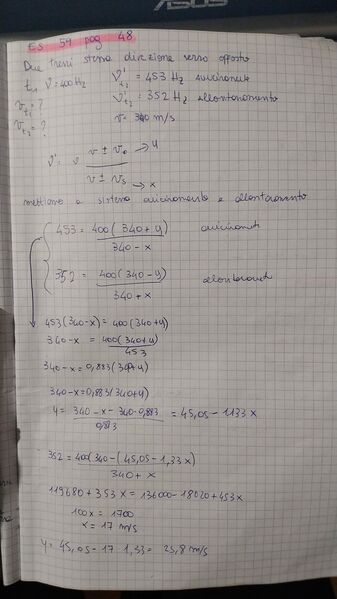 ASUS
Es 54 pag 48
Due treni stessa direzione verso opposto
t₁ ν = 400 Hz ν't₂ = 453 Hz avvicinante
vt₁ = ? ν't₂ = 352 Hz allontanamento
vt₂ = ? v = 340 m/s
ν' = ν (v ± v₀ → y) / (v ± vs → x)
mettiamo a sistema avvicinamento e allontanamento
453 = 400(340+y) / (340-x) avvicinanti
352 = 400(340-y) / (340+x)
453(340-x) = 400(340+y)
340-x = 400(340+y) / 453
340-x = 0,883(340+y)
340-x = 0,883(340+y)
y = (340-x-340·0,883) / 0,883 = 45,05 - 1,133x
352 = 400(340-(45,05-1,33x) / (340+x)
119680 + 353x = 136000 - 18020 + 453x
100x = 1700
x = 17 m/s
y = 45,05 - 17·1,33 = 25,8 m/s